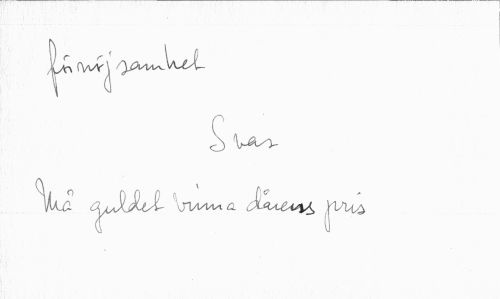 förnöjsamhet
Svar
Må guldet vinna dårens pris